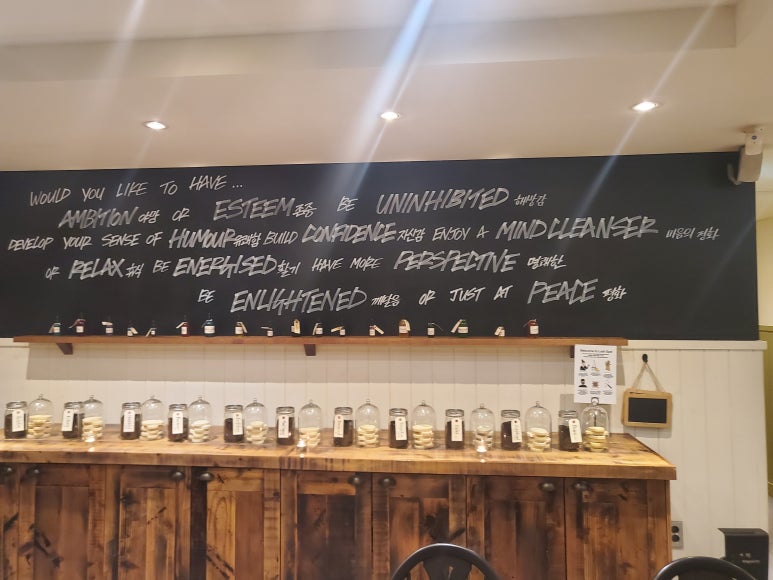 WOULD YOU LIKE TO HAVE...
AMBITION 야망 OR ESTEEM 존중 BE UNINHIBITED 해방감
DEVELOP YOUR SENSE OF HUMOUR 유쾌함 BUILD CONFIDENCE 자신감 ENJOY A MIND CLEANSER 마음의 정화
OR RELAX 휴식 BE ENERGISED 활기 HAVE MORE PERSPECTIVE 명쾌한
BE ENLIGHTENED 깨달음 OR JUST AT PEACE 평화